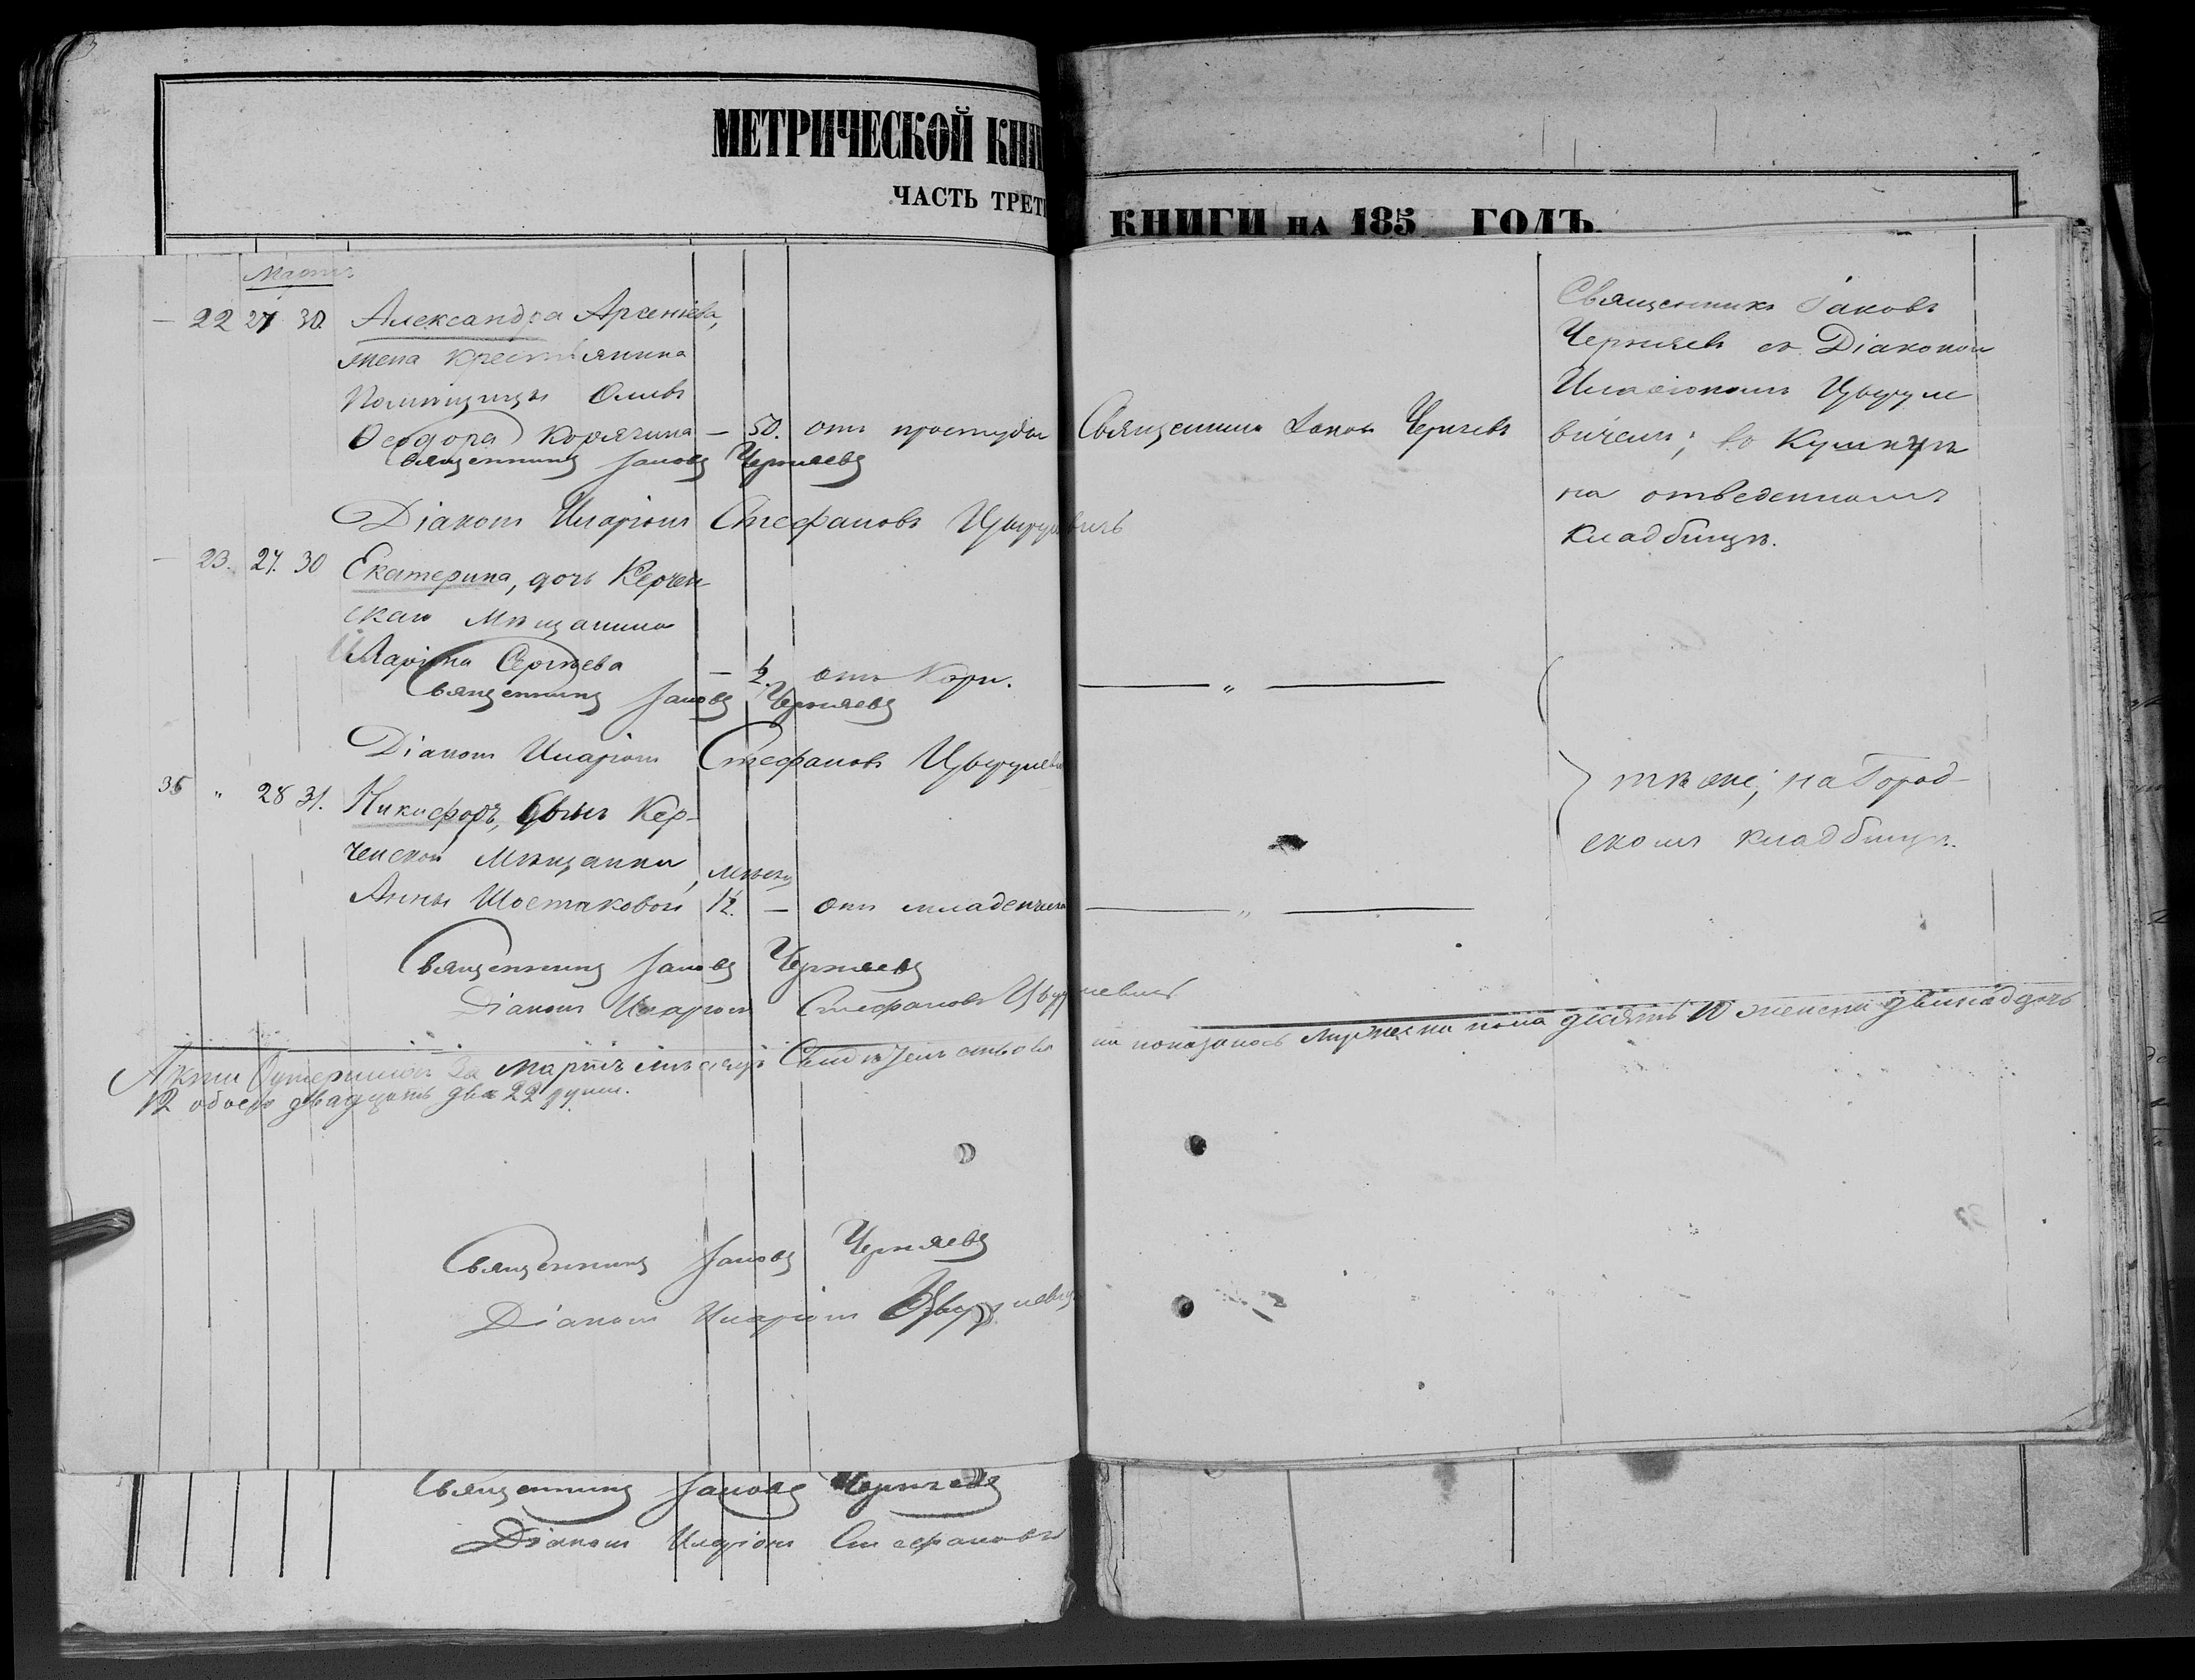 МЕТРИЧЕСКОЙ КНИ
ЧАСТЬ ТРЕТ
КНИГИ НА 185 ГОДЪ
Мартъ
— 22 27 30. Александра Арсеніева,
жена крестьянина
Помѣщицы
Ѳеодора Корягина — 50. отъ простуды
Священникъ Іаковъ Черняевъ
Діаконъ Иларіонъ Стефановъ
— 23. 27. 30 Екатерина, дочь Керчен-
скаго Мѣщанина
Сергѣева — ½. отъ Кори.
Священникъ Іаковъ Черняевъ
Діаконъ Иларіонъ Стефановъ
35 „ 28 31. Никифоръ, сынъ Кер-
ченской Мѣщанки
Анны Шостаковой, мѣсяц 1½. — отъ младенческ
Священникъ Іаковъ Черняевъ
Діаконъ Иларіонъ Стефановъ
умершихъ за Мартъ мѣсяцъ
12 обоего двадцать два 22 души.
Священникъ Іаковъ Черняевъ
Діаконъ Иларіонъ
Священникъ Іаковъ Черняевъ
Діаконъ Иларіонъ Стефановъ
Священникъ Іаковъ Черняевъ
— „ —
— „ —
Священникъ Іаковъ
Черняевъ съ Діакономъ
Иларіономъ Цыбуле
вичемъ; во
на отведенномъ
кладбищѣ.
тѣ же; на Город-
скомъ кладбищѣ.
показалось Мужеска пола десять 10 женска двенадцать